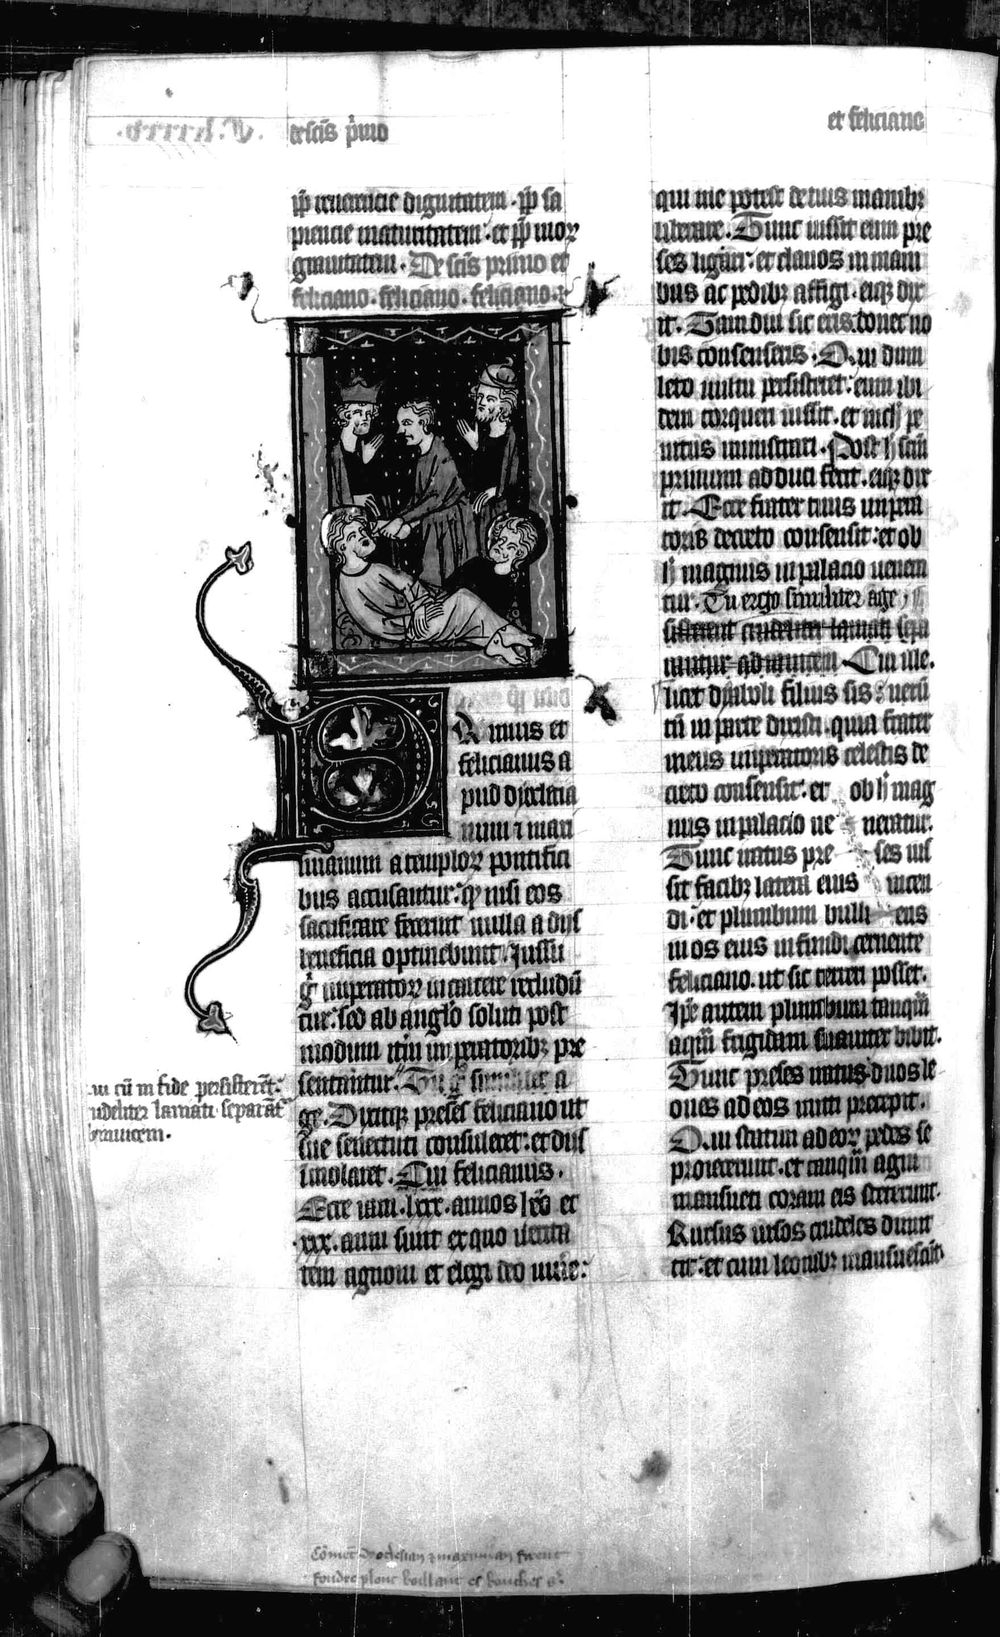 de scīs p̄mo
et feliciano
pp̄ reuerencie dignitatem . pp̄ sa
piencie maturitatem . et pp̄ moꝝ
grauitatem . De scīs primo et
feliciano . feliciano . feliciano .
Rimus et
felicianus a
pud dyoclecia
num ⁊ maxi
mianum a temploꝝ pontifici
bus accusantur . ꝙ nisi eos
sacrificare fecerint nulla a diis
beneficia optinebunt . Jussu
gͦ imperatoꝝ in carcere recludū
tur . sed ab anglo soluti post
modum itm̄ imperatoribꝫ pre
sentantur . Tu gͦ similiter a
ge . Dixitqꝫ preses feliciano ut
sue senectuti consuleret . et diis
imolaret . Cui felicianus .
Ecce iam . lxxx . annos hēo et
. xxx . anni sunt ex quo verita
tem agnoui et elegi deo uiuere :
ui cū in fide persisterēt .
udeliter laniati separāt
inuicem .
qui me potest de tuis manibꝫ
liberare . Tunc iussit eum pre
ses ligari . et clauos in mani
bus ac pedibꝫ affigi . eiqꝫ dix
it . Tam diu sic eris donec no
bis consenseris . Qui dum
leto uultu persisteret . eum ibi
dem torqueri iussit . et nichͥ pe
nitus ministrari . Post hͦ scm̄
primum adduci fecit . eiqꝫ dix
it . Ecce frater tuus impera
toris decreto consensit . et ob
hͦ magnus in palacio uenera
tur . Tu ergo similiter age
Cui ille .
licet dyaboli filius sis uerū
tū in parte dixisti . quia frater
meus imperatoris celestis de
creto consensit . et ob hͦ mag
nus in palacio ue neratur .
Tunc iratus pre ses ius
sit facibꝫ latera eius incen
di . et plumbum bulli ens
in os eius infundi cernente
feliciano . ut sic terreri posset .
Ipse autem plumbum tanquā
aquā frigidam suauiter bibit .
Tunc preses iratus duos le
ones ad eos mitti precepit .
Qui statim ad eoꝝ pedes se
proiecerunt . et tanquā agni
mansueti coram eis steterunt .
Rursus ursos crudeles dimit
tit . et cum leonibꝫ mansuescūt
Cōment dyoclesian ⁊ maximian firent
fondre plonc boillant es bouches